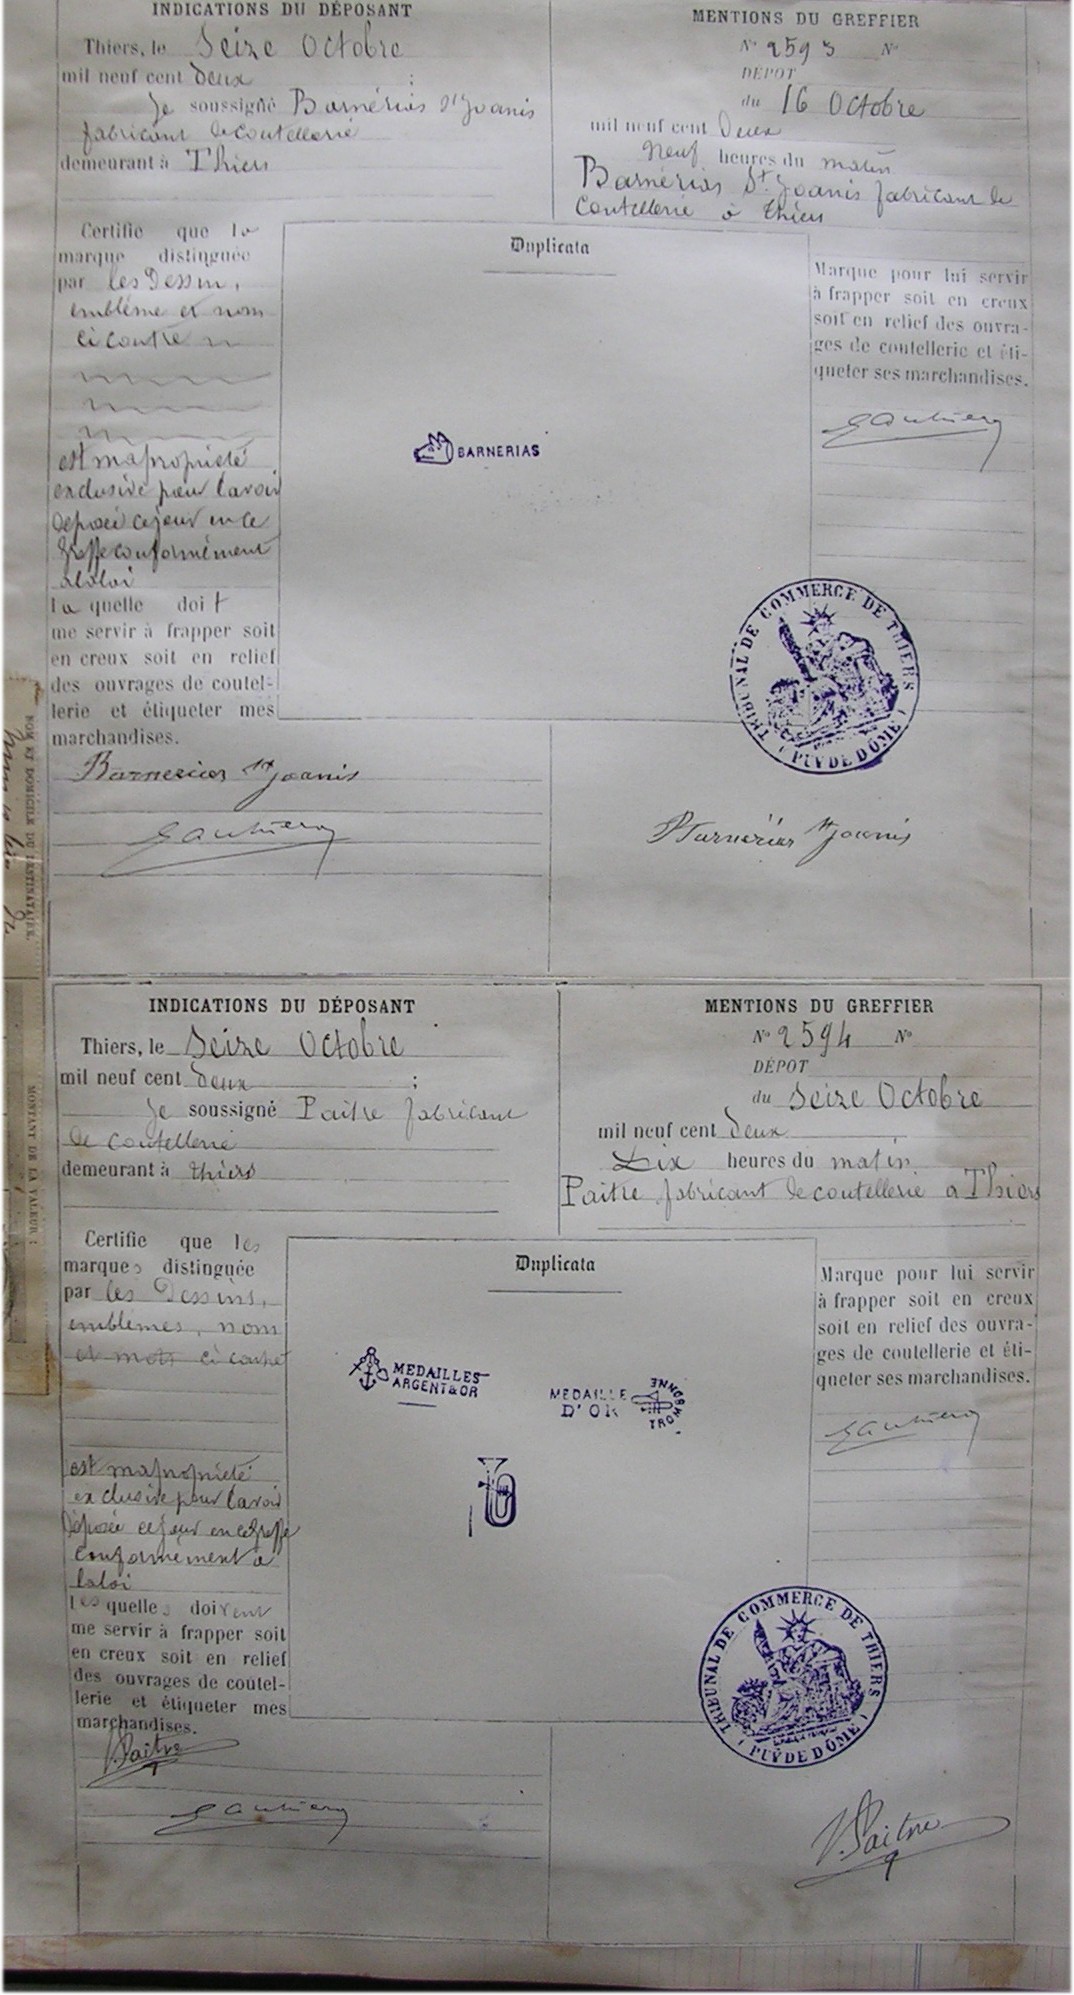 INDICATIONS DU DÉPOSANT
Thiers, le Seize Octobre
mil neuf cent deux ;
Je soussigné Barnérias St Joanis
fabricant de coutellerie
demeurant à Thiers
Certifie que la
marque distinguée
par les Dessin,
emblème et nom
ci contre
est ma propriété
exclusive pour l'avoir
déposée ce jour en ce
greffe conformément
à la loi
la quelle doit
me servir à frapper soit
en creux soit en relief
des ouvrages de coutel-
lerie et étiqueter mes
marchandises.
Barnerias St Joanis
MENTIONS DU GREFFIER
No 2593 No
DÉPOT
du 16 Octobre
mil neuf cent Deux
Neuf heures du matin
Barnérias St. Joanis fabricant de
Coutellerie à thiers
Duplicata
BARNERIAS
Marque pour lui servir
à frapper soit en creux
soit en relief des ouvra-
ges de coutellerie et éti-
queter ses marchandises.
TRIBUNAL DE COMMERCE DE THIERS
( PUY DE DÔME )
Barnérias St Joanis
NOM ET DOMICILE DU DESTINATAIRE.
MONTANT DE LA VALEUR :
INDICATIONS DU DÉPOSANT
Thiers, le Seize Octobre
mil neuf cent deux ;
Je soussigné Paitre fabricant
de coutellerie
demeurant à thiers
Certifie que les
marques distinguée
par les Dessins,
emblèmes, nom
et mots ci contre
est ma propriété
exclusive pour l'avoir
déposée ce jour en ce greffe
conformément à
la loi
les quelles doivent
me servir à frapper soit
en creux soit en relief
des ouvrages de coutel-
lerie et étiqueter mes
marchandises.
Paitre
MENTIONS DU GREFFIER
No 2594 No
DÉPOT
du Seize Octobre
mil neuf cent deux
Dix heures du matin
Paitre fabricant de coutellerie a Thiers
Duplicata
MEDAILLES
ARGENT & OR
MEDAILLE
D'OR
TROMBONNE
Marque pour lui servir
à frapper soit en creux
soit en relief des ouvra-
ges de coutellerie et éti-
queter ses marchandises.
TRIBUNAL DE COMMERCE DE THIERS
( PUY DE DÔME )
Paitre